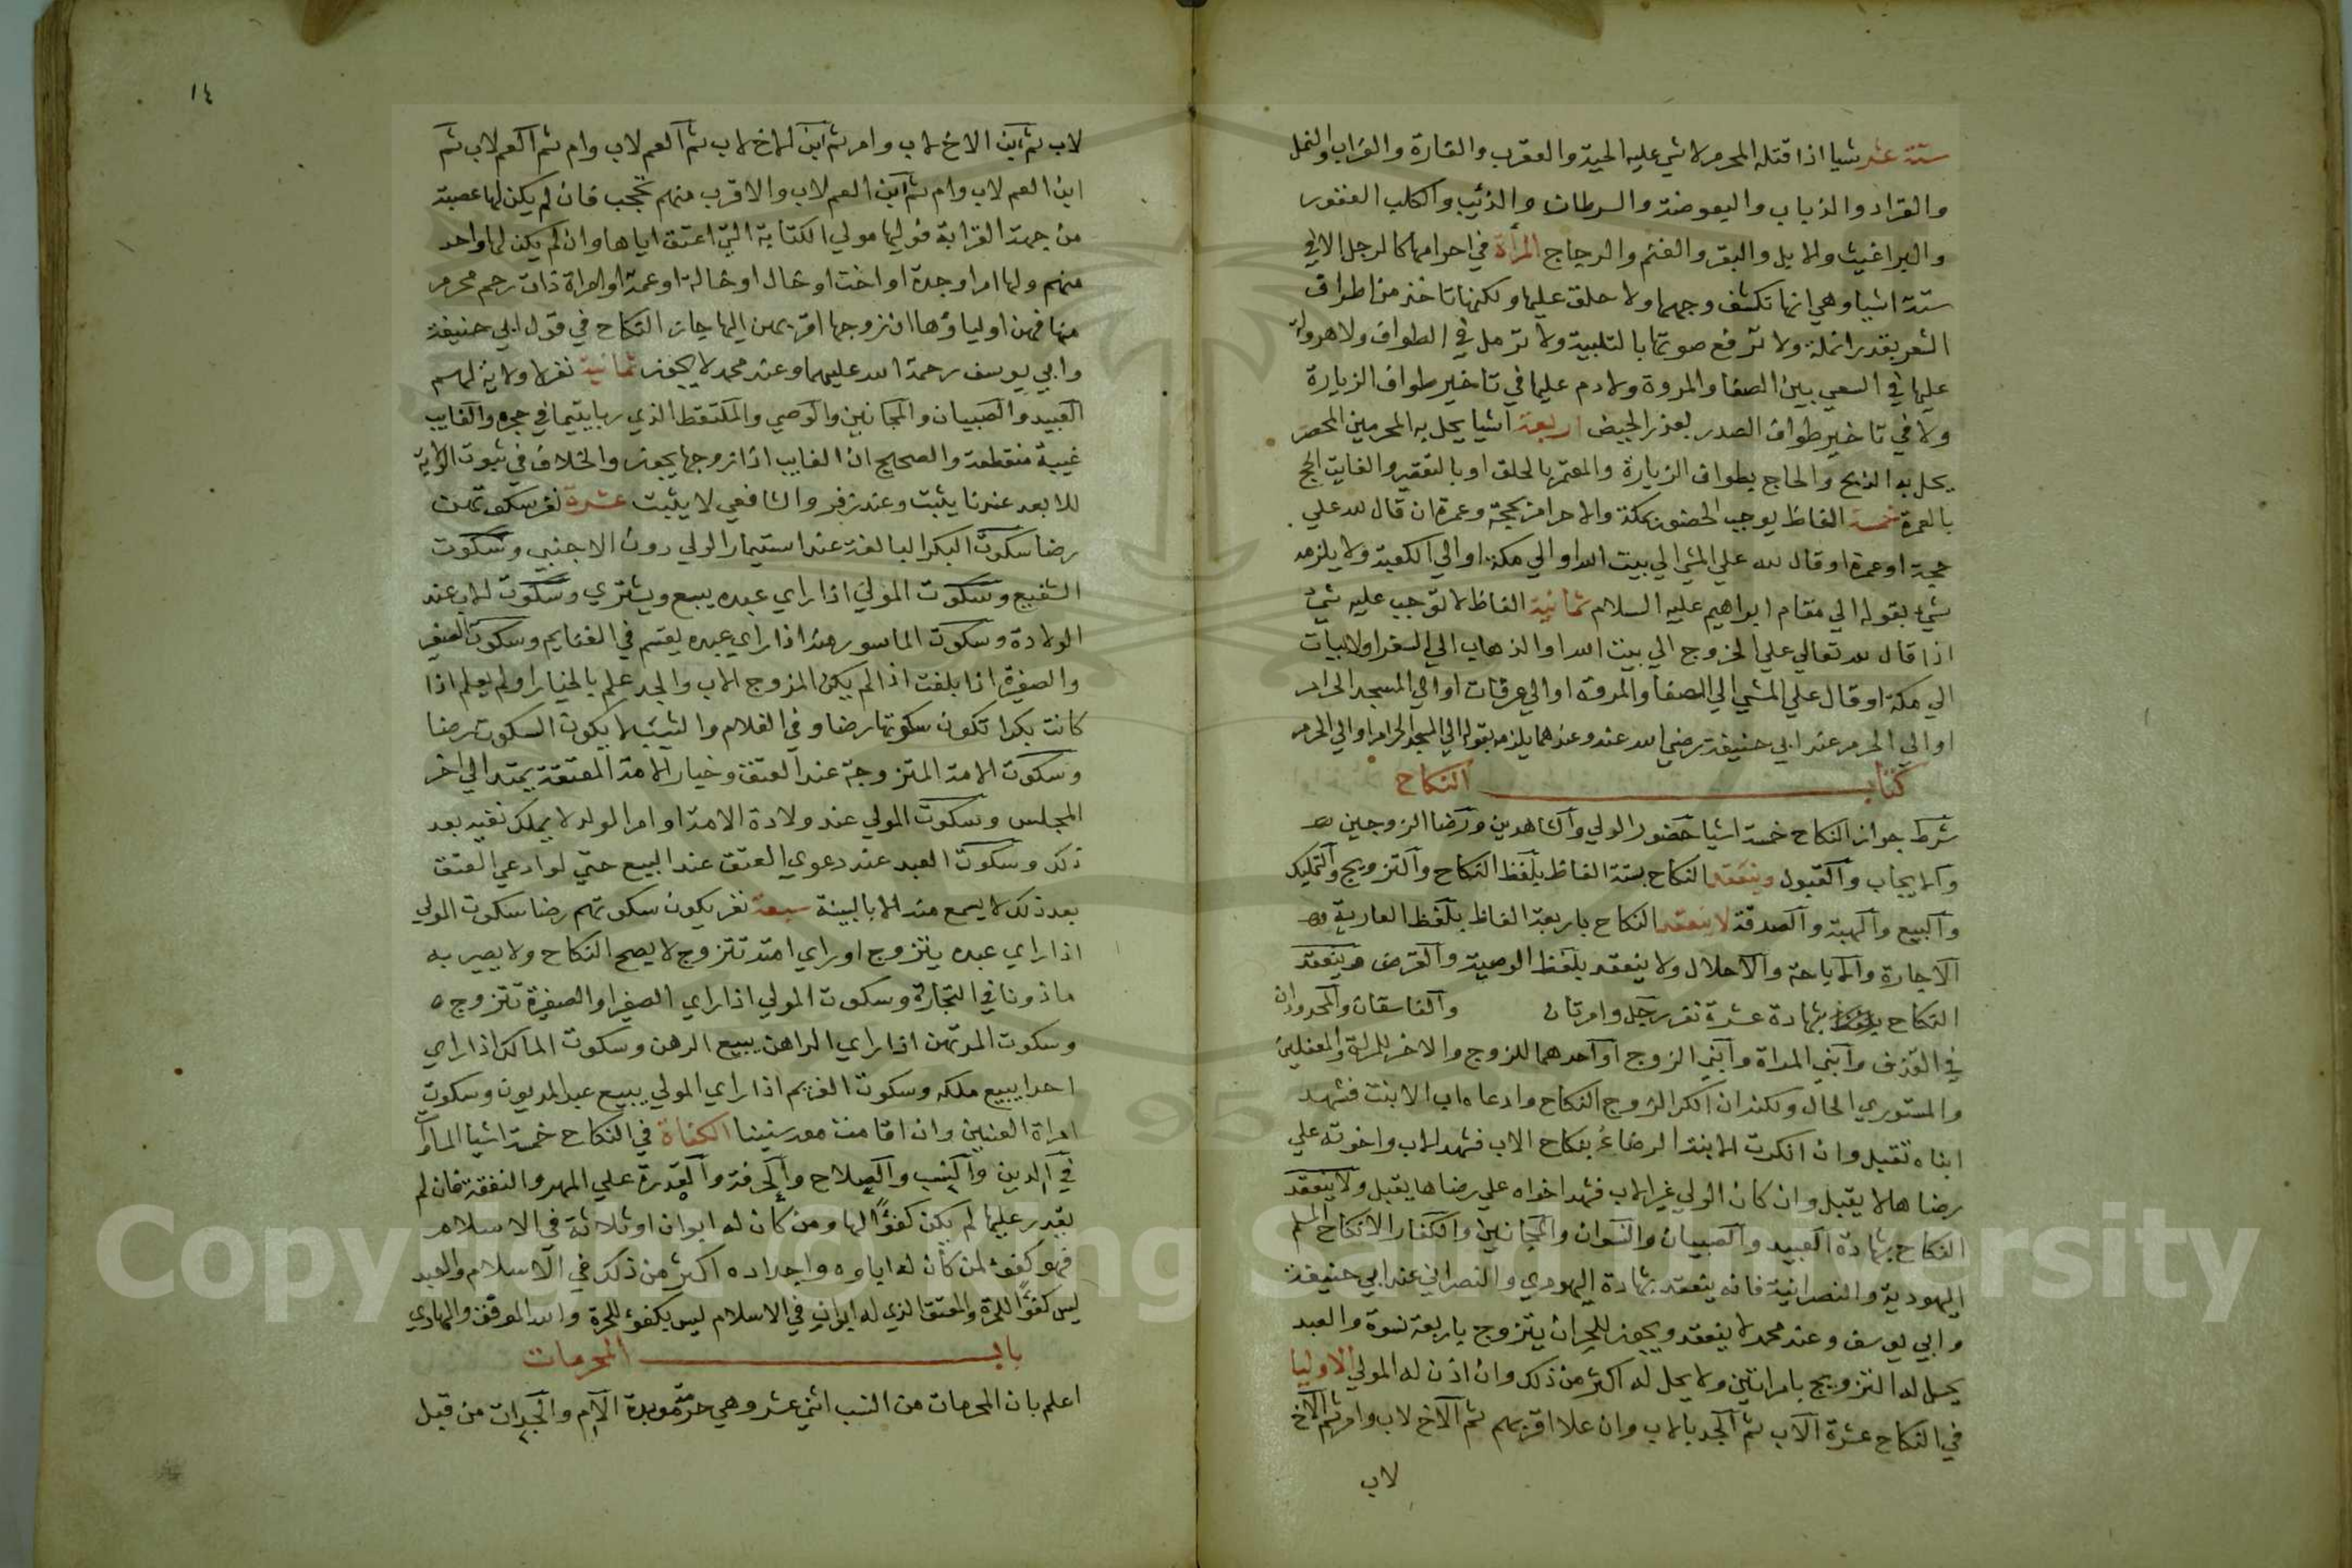 ستة عشر شيا اذا قتله المحرم لا شي عليه الحية والعقرب والفارة والغراب والنمل
والقراد والذباب والبعوضة والسرطان والذئب والكلب العقور
والبراغيث والابل والبقر والغنم والدجاج المرأة في احرامها كالرجل الا في
ستة اشيا وهي انها تكشف وجهها ولا حلق عليها ولكنها تاخذ من اطراف
الشعر بقدر انملة ولا ترفع صوتها بالتلبية ولا ترمل في الطواف ولا هرولة
عليها في السعي بين الصفا والمروة ولا دم عليها في تاخير طواف الزيارة
ولا في تاخير طواف الصدر بعذر الحيض اربعة اشيا يحل به المحرمين المحصر
يحل به الذبح والحاج بطواف الزيارة والمعتمر بالحلق او بالتقصير والفايت الحج
بالعمرة خمسة الفاظ يوجب الحضور بمكة والاحرام بحجة وعمرة ان قال لله علي
حجة او عمرة او قال لله علي المشي الي بيت الله او الي مكة او الي الكعبة ولا يلزمه
شيء بقوله الي مقام ابراهيم عليه السلام ثمانية الفاظ لا توجب عليه شيء
اذا قال لله تعالي علي الخروج الي بيت الله او الذهاب الي السفر او لابيات
الي مكة او قال علي المشي الي الصفا والمروة او الي عرفات او الي المسجد الحرام
او الي الحرم عند ابي حنيفة رضي الله عنه وعندهما يلزمه بقوله الي المسجد الحرام او الي الحرم
كتاب النكاح
شرط جواز النكاح خمسة اشيا حضور الولي والشاهدين ورضا الزوجين
والايجاب والقبول وينعقد النكاح بستة الفاظ بلفظ النكاح والتزويج والتمليك
والبيع والهبة والصدقة لا ينعقد النكاح باربعة الفاظ بلفظ العارية و
الاجارة والاباحة والاحلال ولا ينعقد بلفظ الوصية والقرض وينعقد
النكاح بشهادة عشرة نفر رجل وامرتان والفاسقان والمحدودان
في القذف وابني المراة وابني الزوج او احدهما للزوج والاخر للمراة والمغفلين
والمستوري الحال ولكن ان انكر الزوج النكاح وادعاه اب الابنت فشهد
ابناه تقبل وان انكرت الابنة الرضاء بنكاح الاب فشهد الاب واخوته علي
رضاها لا يقبل وان كان الولي غير الاب فشهد اخواه علي رضاها يقبل ولا ينعقد
النكاح بشهادة العبيد والصبيان والنسوان والمجانين والكفار الا نكاح المسلم
اليهودية والنصرانية فانه ينعقد بشهادة اليهودي والنصراني عند ابي حنيفة
وابي يوسف وعند محمد لا ينعقد ويجوز للحر ان يتزوج باربعة نسوة والعبد
يحل له التزويج بامراتين ولا يحل له اكثر من ذلك وان اذن له المولي الاوليا
في النكاح عشرة الاب ثم الجد بالاب وان علا اقربهم ثم الاخ لاب وام ثم الاخ
لاب
١٤
لاب ثم ابن الاخ لاب وام ثم ابن الاخ لاب ثم العم لاب وام ثم العم لاب ثم
ابن العم لاب وام ثم ابن العم لاب والاقرب منهم يحجب فان لم يكن لها عصبة
من جهة القرابة فوليها مولي الكتابة التي اعتق اياها وان لم يكن لها واحد
منهم ولها ام او جدة او اخت او خال او خالة او عمة او امراة ذات رحم محرم
منها فهن اولياؤها ان زوجها اقربهن اليها جاز النكاح في قول ابي حنيفة
وابي يوسف رحمة الله عليهما وعند محمد لا يجوز ثمانية نفر لا ولاية لهم
العبيد والصبيان والمجانين والوصي والملتقط الذي ربا يتيما في حجره والغايب
غيبة منقطعة والصحيح ان الغايب اذا زوجها يجوز والخلاف في ثبوت الولاية
للابعد عندنا يثبت وعند زفر والشافعي لا يثبت عشرة نفر سكوتهن
رضا سكوت البكر البالغة عند استيمار الولي دون الاجنبي وسكوت
الشفيع وسكوت المولي اذا راي عبده يبيع ويشتري وسكوت الاب عند
الولادة وسكوت الماسور منه اذا راي عبده يقسم في الغنايم وسكوت الصغير
والصغيرة اذا بلغت اذا لم يكن المزوج الاب والجد علم بالخيار او لم يعلم اذا
كانت بكرا تكون سكوتها رضا وفي الغلام والثيب لا يكون السكوت رضا
وسكوت الامة المتزوجة عند العتق وخيار الامة المعتقة يمتد الي اخر
المجلس وسكوت المولي عند ولادة الامة او ام الولد لا يملك نفيه بعد
ذلك وسكوت العبد عند دعوي العتق عند البيع حتي لو ادعي العتق
بعد ذلك لا يسمع منه الا بالبينة سبعة نفر يكون سكوتهم رضا سكوت المولي
اذا راي عبده يتزوج او راي امته تتزوج لا يصح النكاح ولا يصير به
ماذونا في التجارة وسكوت المولي اذا راي الصغير او الصغيرة تتزوج
وسكوت المرتهن اذا راي الراهن يبيع الرهن وسكوت المالك اذا راي
احدا يبيع ملكه وسكوت الغريم اذا راي المولي يبيع عبد المديون وسكوت
امراة العنين وان اقامت معه سنينا الكفاة في النكاح خمسة اشيا المساوات
في الدين والنسب والصلاح والحرفة والقدرة علي المهر والنفقة فان لم
يقدر عليها لم يكن كفؤا لها ومن كان له ابوان او ثلاثة في الاسلام
فهو كفوء لمن كان له اباوه واجداده اكثر من ذلك في الاسلام والعبد
ليس كفؤا للحرة والمعتق الذي له ابوان في الاسلام ليس بكفوء للحرة والله الموفق والهادي
باب المحرمات
اعلم بان المحرمات من النسب اثني عشر وهي حرمة موبدة الام والجدات من قبل
Copyright © King Saud University